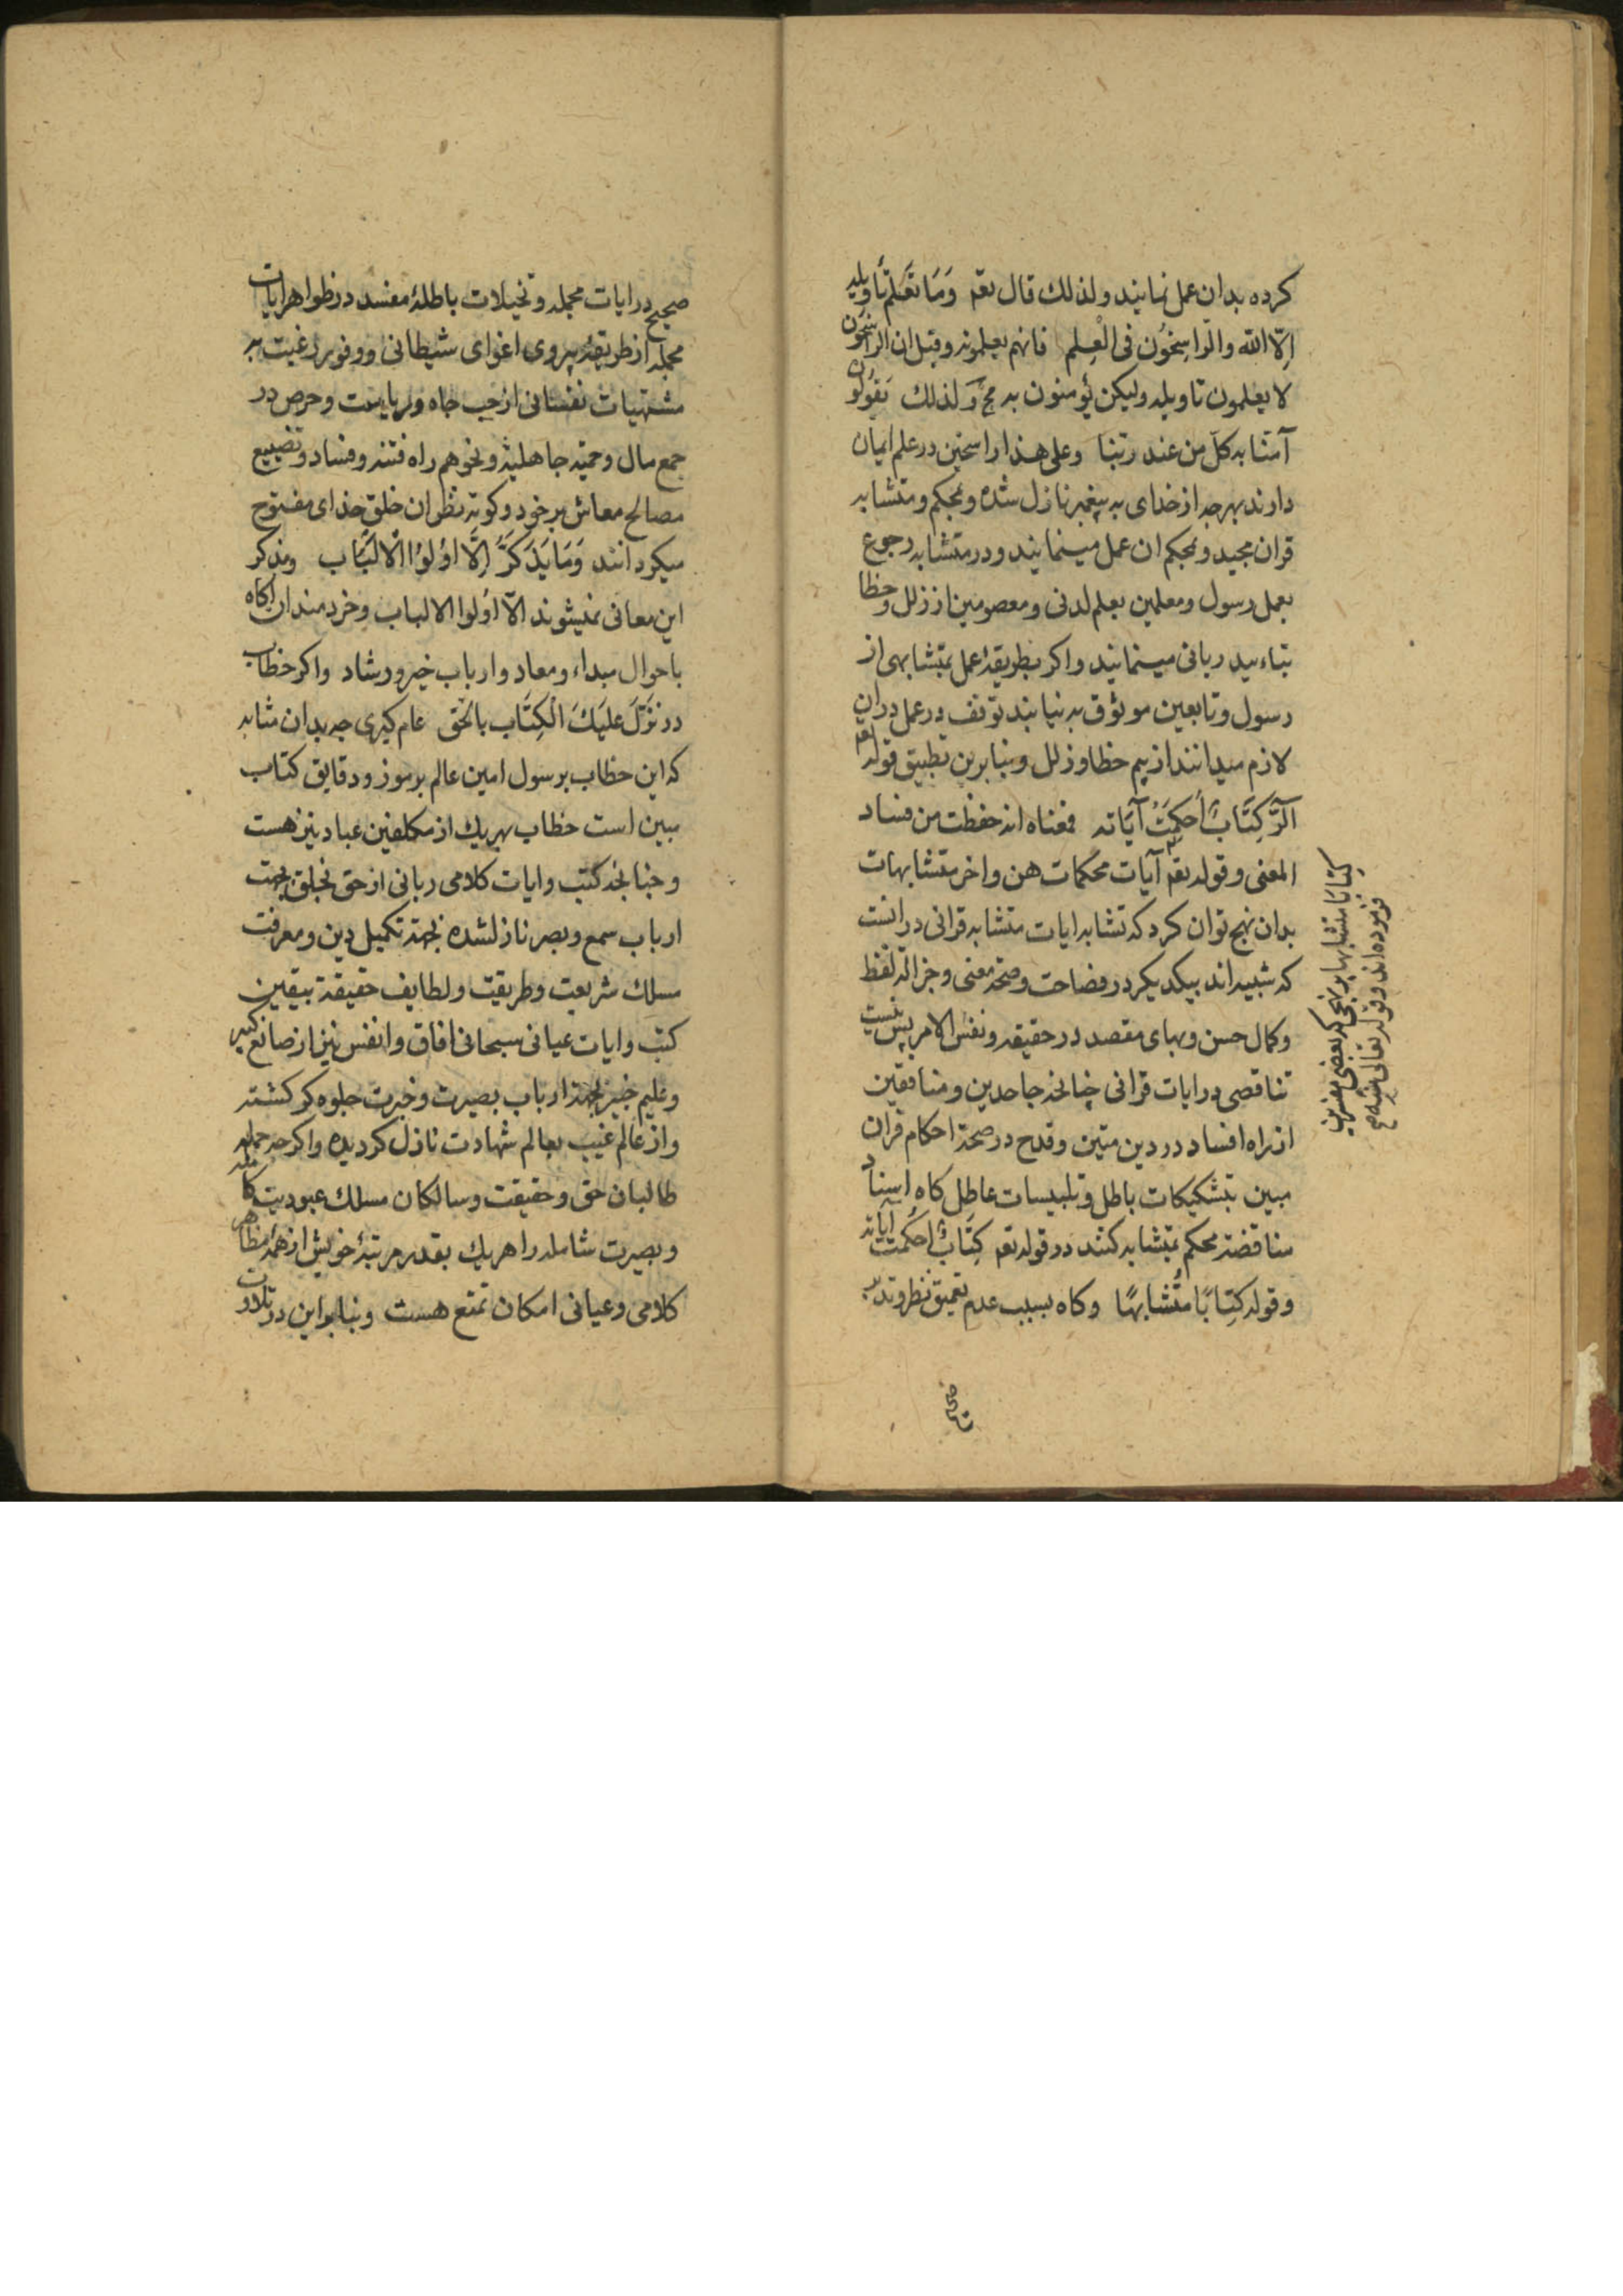 كرده بدان عمل نمايند ولذلك قال تعم وَمَا تَعْلَم تَأويله
اِلّا الله والرّاسِخُون فى الْعِلم فانهم يعلمونه وقيل ان الراسخون
لا يعلمون تاويله وليكن يؤمنون به مح ولذلك يَقوُلُون
آمنّا به كلّ من عند ربّنا وعلى هذا راسخين در علم ايمان
دارند بهر چه از خداى به پيغمبر نازل شده وبمحكم ومتشابه
قران مجيد وبمحكم ان عمل مينمايند ودر متشابه رجوع
بعمل رسول ومعلمين بعلم لدنى ومعصومين از زلل وخطا
بتاءييد ربانى مينمايند واكر بطريقهٔ عمل بمتشابهى از
رسول وتابعين موثوق به نيابند توقف در عمل دران
لازم ميدانند از بيم خطا وزلل وبنابرين تطبيق قوله تعم
آلرَّ كِتَابٌ اُحكِمَتْ آيَاته فمعناه انه حفظت من فساد
المعنى وقوله تعم آيات محكمات هن واخر متشابهات
بدان نهج توان كرد كه تشابه ايات متشابه قرانى در انست
كه شبيه اند بيكديكر در فصاحت وصحة معنى وجزالة لفظ
وكمال حسن وبهاى مقصد در حقيقه ونفس الامر پس نيست
تناقصى در ايات قرانى چنانچه جاحدين ومنافقين
از راه افساد در دين متين وقدح در صحة احكام قران
مبين بتشكيكات باطل وتلبيسات عاطل كاه اسناد
مناقضة محكم بمتشابه كنند در قوله تعم كِتَابٌ اُحكمت آياته
وقوله كِتابًا مُتشابهًا وكاه بسبب عدم تعميق نظر وتدبر
كِتابًا متشابها بر نهجى كه بعضى مفسرين
فرموده اند وقوله تعالى منه
صحيح
صحيح در ايات مجمله وتخيلات باطلهٔ مفسد در ظواهر ايات
مجمله از طريقهٔ پيروى اغواى شيطانى ووفور رغبت به
مشتهيات نفسانى از حب جاه ورياست وحرص در
جمع مال وحميّة جاهليّة ونحوهم راه فتنه وفساد وتضييع
مصالح معاش بر خود وكوته نظران خلق خداى مفتوح
ميكردانند وَمَا يَذكَّرُ اِلَّا اوُلوُا الْالبَاب ومذكر
اين معانى نميشوند الّا اوُلوا الالباب وخردمندان اكاه
باحوال مبداء ومعاد وارباب خير ورشاد واكر خطاب
در نَزَّلَ عليَكَ الْكِتَاب بالحَق عام كيرى چه بدان مثابه
كه اين خطاب برسول امين عالم برموز ودقايق كتاب
مبين است خطاب بهريك از مكلفين عباد نيز هست
وچنانچه كتب وايات كلامى ربانى از حق بخلق بجهت
ارباب سمع وبصر نازلشده بجهة تكميل دين ومعرفت
مسلك شريعت وطريقت ولطايف حقيقة بيقين
كتب وايات عيانى سبحانى افاق وانفس نيز از صانع كبير
وعليم خبير بجهة ارباب بصيرت وخبرت جلوه كر كشته
واز عالم غيب بعالم شهادت نازل كرديده واكر چه جمله
طالبان حق وحقيقت وسالكان مسلك عبوديت كامله
وبصيرت شامله را هريك بقدر مرتبهٔ خويش از همهٔ مظاهر
كلامى وعيانى امكان تمتع هست وبنابراين در تلاوت